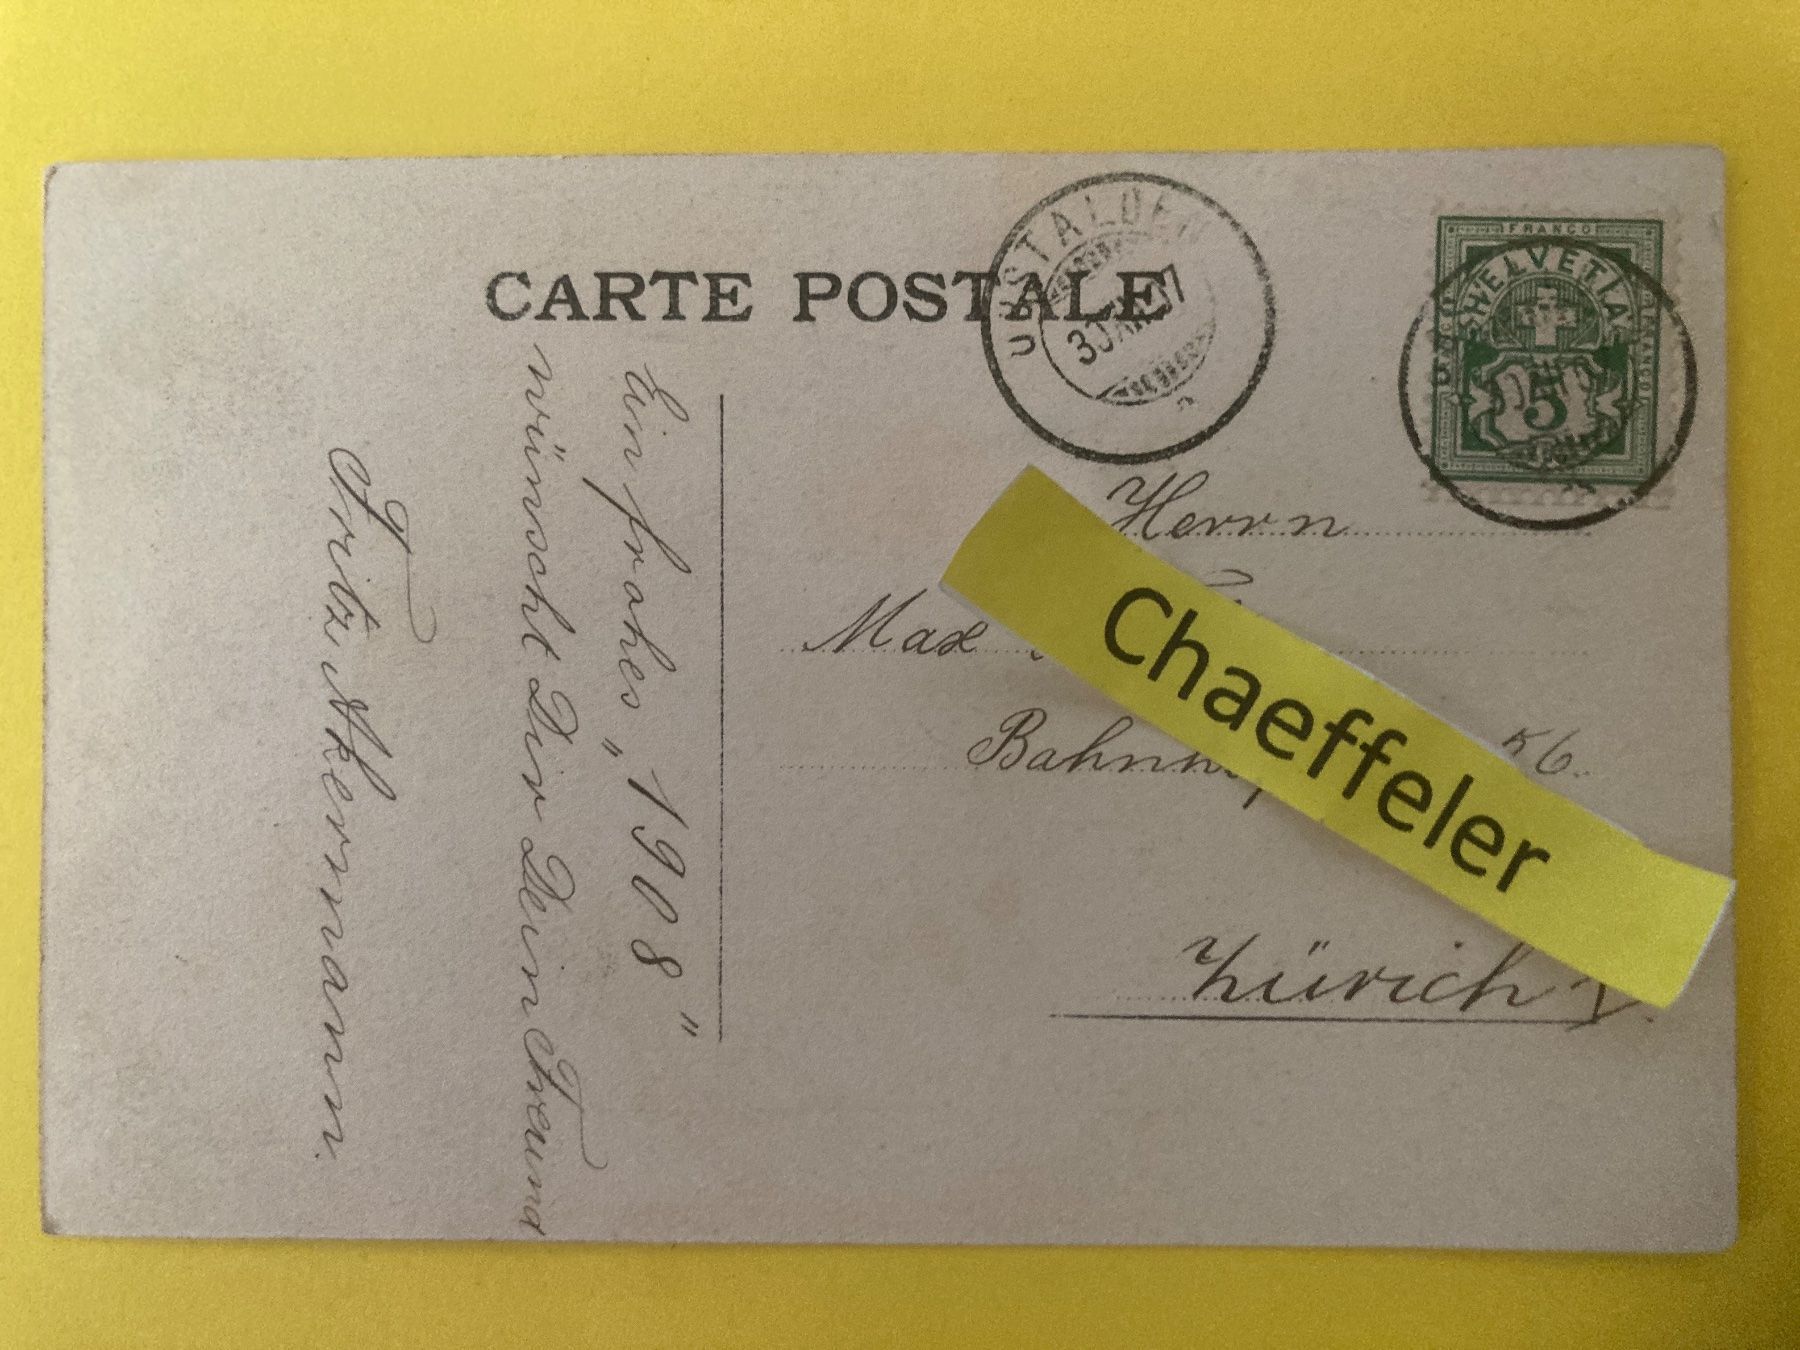 CARTE POSTALE
30 XII 07
FRANCO
HELVETIA
5
Herrn
Max
56.
Zürich V.
Chaeffeler
Ein frohes „1908"
wünscht Dir Dein Freund
Fritz Akermann.